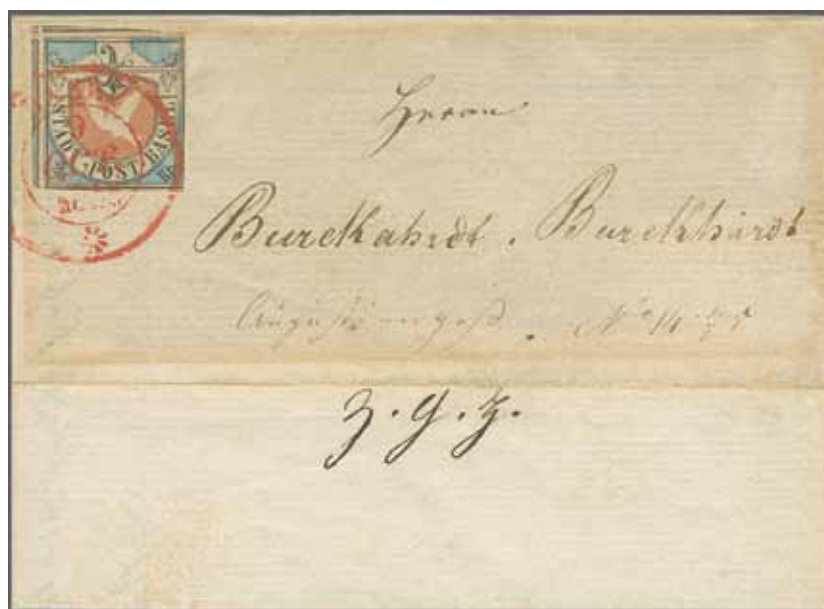 STADT-POST-BASEL
Herrn
Burckahrdt. Burckhardt
Augustinergass. No
z. g. Z.